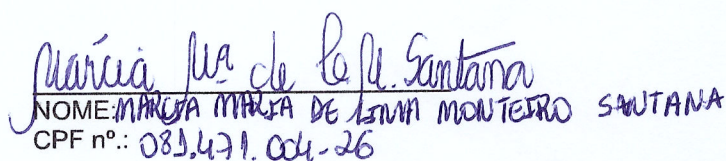 Márcia Mª de L. M. Santana
NOME: MARCIA MARIA DE LIMA MONTEIRO SANTANA
CPF nº.: 081.471.004-26